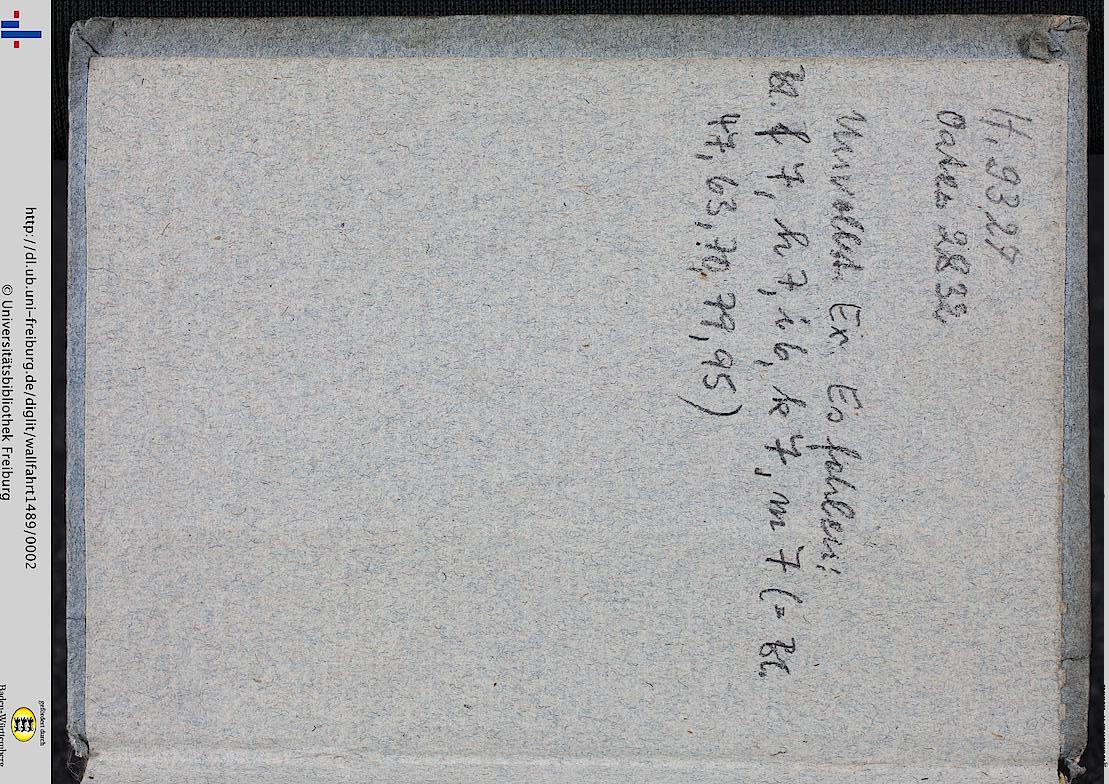 H. 9327
Oates 2832
Unvollst. Ex. Es fehlen:
Bl. f 7, h 7, i 6, k 7, m 7 (= Bl.
47, 63, 70, 79, 95)
http://dl.ub.uni-freiburg.de/diglit/wallfahrt1489/0002
© Universitätsbibliothek Freiburg
gefördert durch
Baden-Württemberg